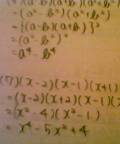 =(a²-b²)(a²+b²)
={(a-b)(a+b)}²
=(a²-b²)²
=a⁴-b⁴
(7)(x-2)(x-1)(x+1)
=(x-2)(x+2)(x-1)(x
=(x²-4)(x²-1)
=x⁴-5x²+4